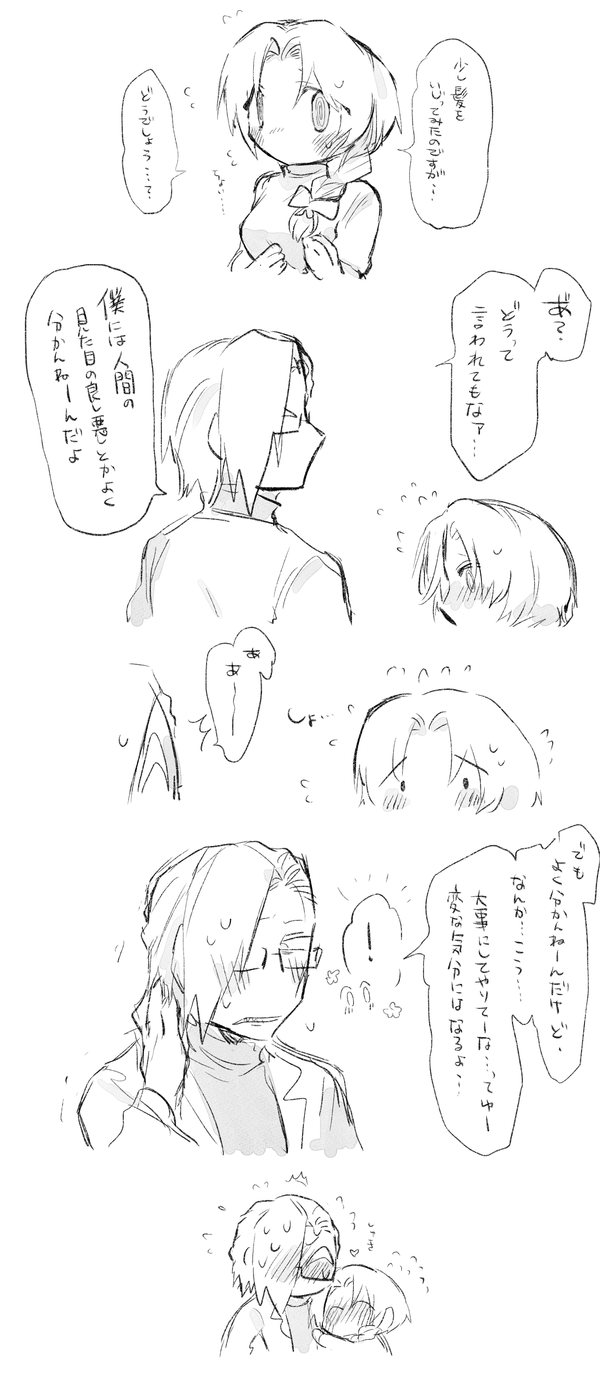 少し髪を
いじってみたのですが…
どうでしょう…？
あ？
どうって
言われてもなァ…
僕には人間の
見た目の良し悪しとかよく
分かんねーんだよ
しょ…
あ
あ
でも
よく分かんねーんだけど、
なんか…こう…
大事にしてやりてーな…ってゆー
変な気分にはなるよ…
！